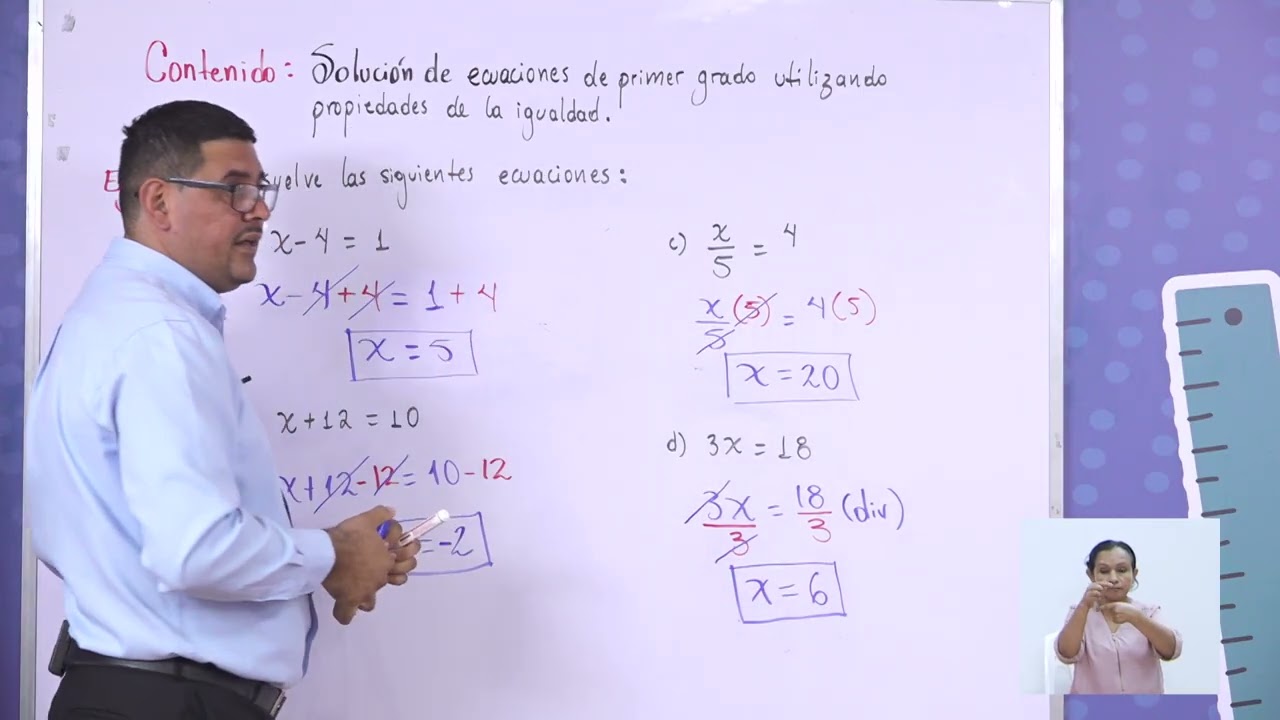 Contenido: Solución de ecuaciones de primer grado utilizando
propiedades de la igualdad.
las siguientes ecuaciones:
x - 4 = 1
x - 4 + 4 = 1 + 4
x = 5
x + 12 = 10
x + 12 - 12 = 10 - 12
= -2
c) x/5 = 4
x/5 (5) = 4(5)
x = 20
d) 3x = 18
3x/3 = 18/3 (div)
x = 6